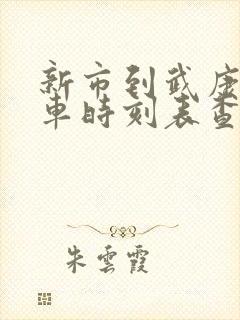 新市到武康
车时刻表查
朱雲霞